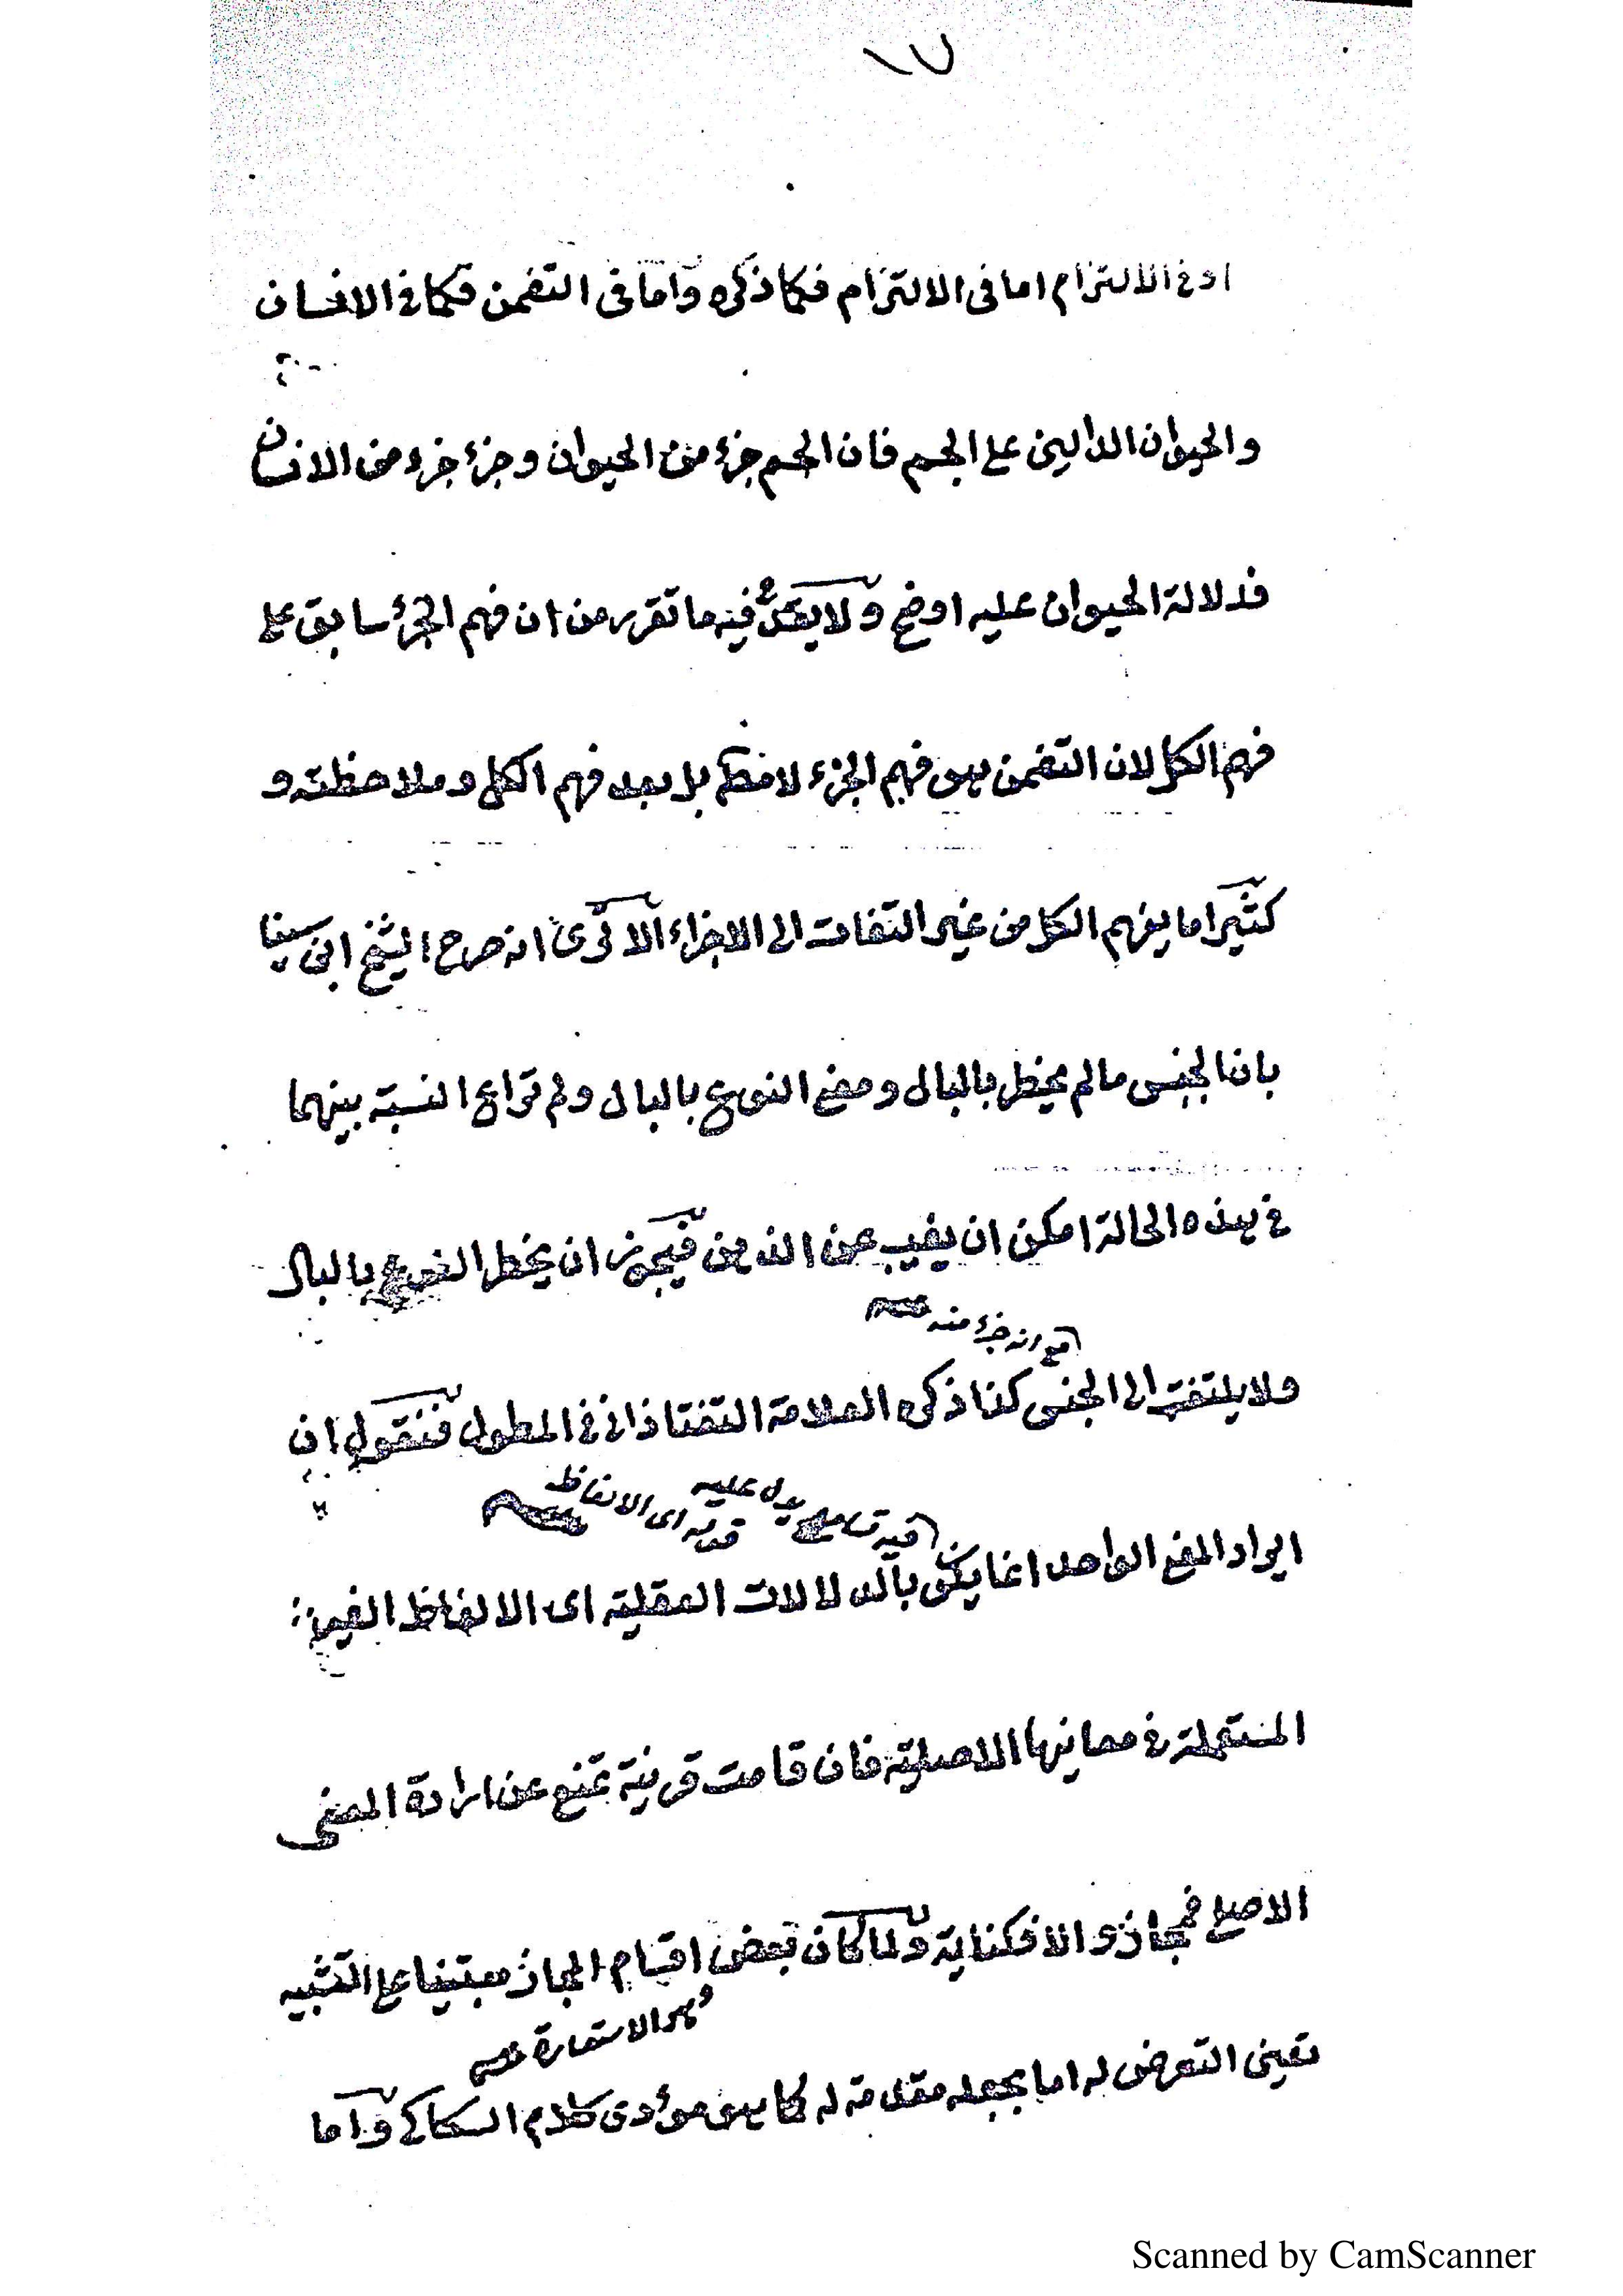 ١٧
او فى الالتزام اما فى الالتزام فكما ذكره واما فى التضمن فكما فى الانسان
والحيوان الدالين على الجسم فان الجسم جزء من الحيوان وجزء جزء من الانسان
فدلالة الحيوان عليه اوضح ولا يقدح فيه ما تقرر من ان فهم الجزء سابق على
فهم الكل لان التضمن هو فهم الجزء لا مطلقا بل بعد فهم الكل وملاحظته و
كثيرا ما يفهم الكل من غير التفات الى الاجزاء الا ترى انه صرح الشيخ ابن سينا
بان الجنس ما لم يخطر بالبال ومعنى النوع بالبال ولم تراع النسبة بينهما
فى هذه الحالة امكن ان يغيب عن الذهن فيجوز ان يخطر النوع بالبال
مع انه جزء منه
ولا يلتفت الى الجنس كذا ذكره العلامة التفتازانى فى المطول فنقول ان
فيه تسامح يدل عليه
قوله اى الالفاظ
ايراد المعنى الواحد انما يكون بالدلالات العقلية اى الالفاظ الغير
المستعملة فى معانيها الاصلية فان قامت قرينة تمنع عن ارادة المعنى
الاصلى فمجاز والا فكناية ولما كان بعض اقسام المجاز مبتنيا على التشبيه
وهو الاستعارة
تعين التعرض له اما بجعله مقدمة له كما هو مؤدى كلام السكاكى واما
Scanned by CamScanner